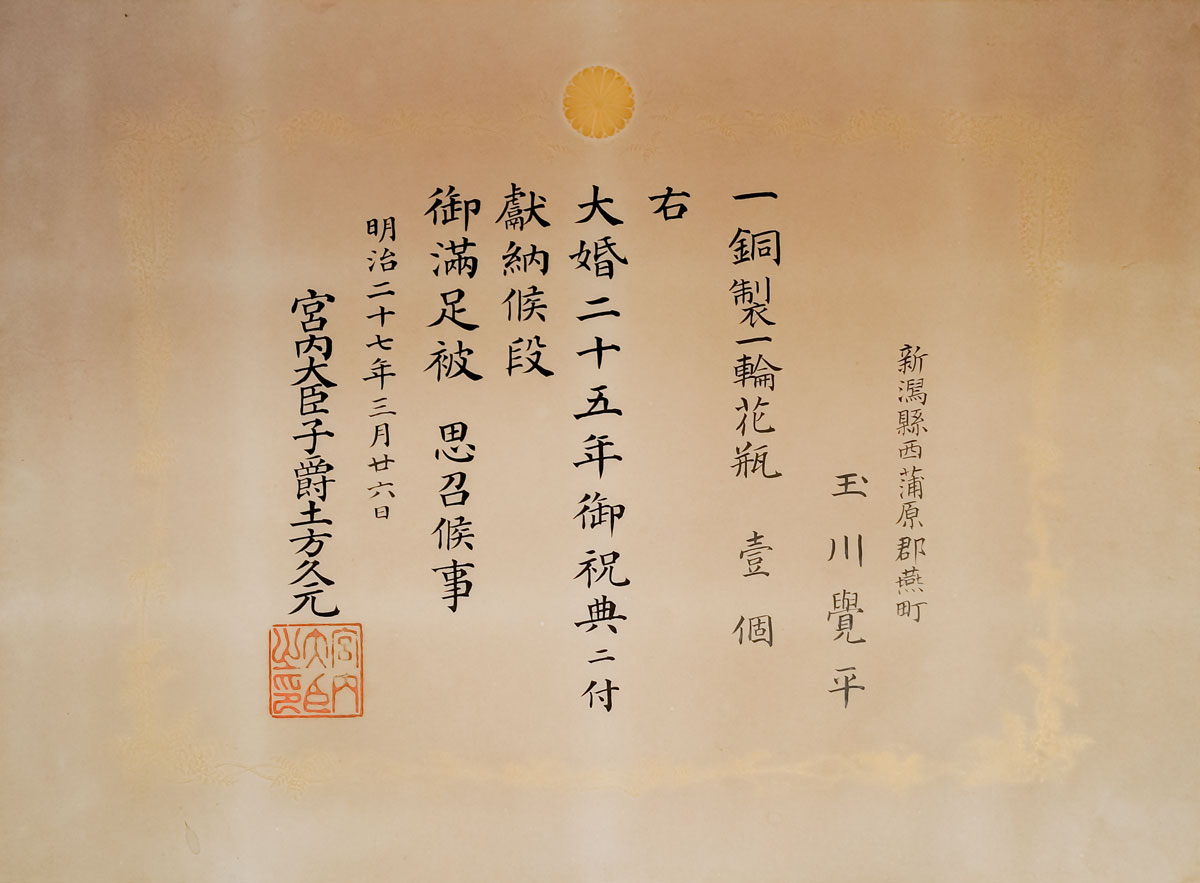 新潟縣西蒲原郡燕町
玉川覺平
一銅製一輪花瓶 壹個
右
大婚二十五年御祝典ニ付
獻納候段
御滿足被 思召候事
明治二十七年三月廿六日
宮内大臣子爵土方久元
宮内大臣之印